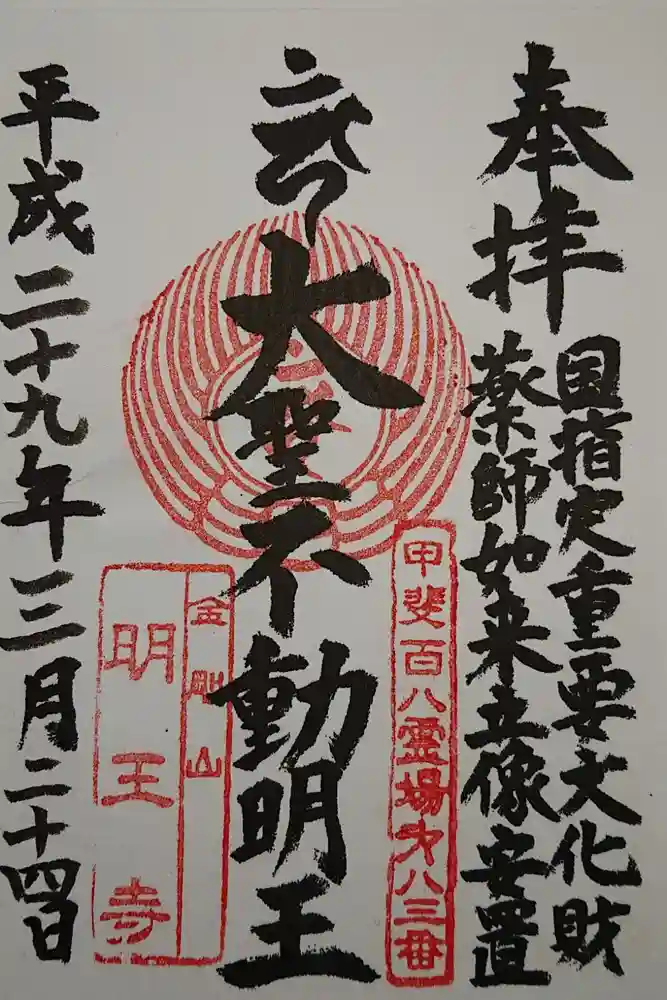 奉拝
国指定重要文化財
薬師如来立像安置
大聖不動明王
甲斐百八霊場才八三番
金剛山
明王寺
平成二十九年三月二十四日